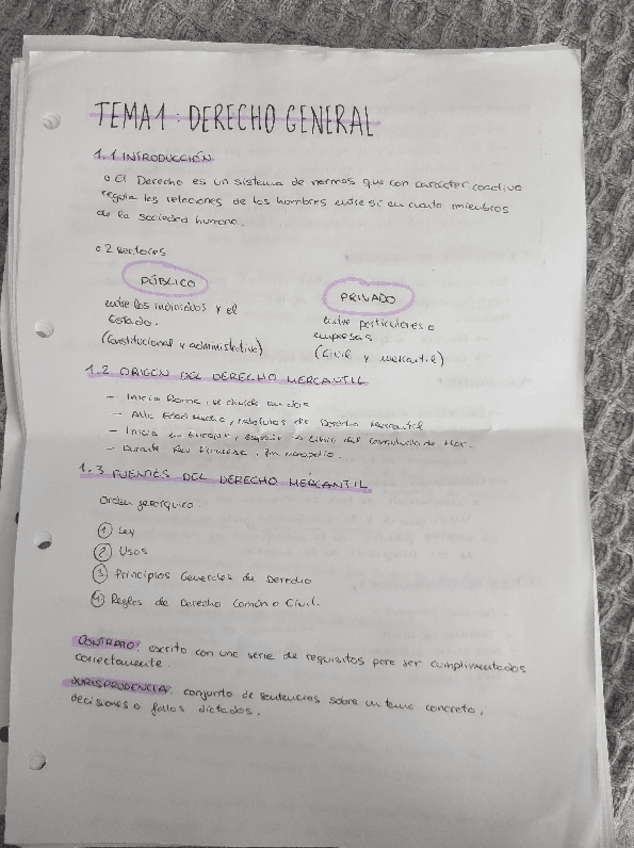 TEMA 1: DERECHO GENERAL
1.1 INTRODUCCIÓN
o El Derecho es un sistema de normas que con carácter coactivo
regula las relaciones de los hombres entre sí en cuanto miembros
de la sociedad humana.
o 2 sectores
PÚBLICO
entre los individuos y el
Estado.
(Constitucional y administrativo)
PRIVADO
Entre particulares o
empresas
(Civil y mercantil)
1.2 ORIGEN DEL DERECHO MERCANTIL
- Inicia Roma, se divide en dos
- Alta Edad Media, Derecho Mercantil
- Inicia en Europa, Libro del Consulado de Mar.
- Durante Rev Francesa, fin monopolio.
1.3 FUENTES DEL DERECHO MERCANTIL
Orden jerárquico.
1 Ley
2 Usos
3 Principios Generales de Derecho
4 Reglas de Derecho Común o Civil.
CONTRATO: escrito con una serie de requisitos para ser cumplimentados
correctamente.
JURISPRUDENCIA: conjunto de sentencias sobre un tema concreto,
decisiones o fallos dictados.